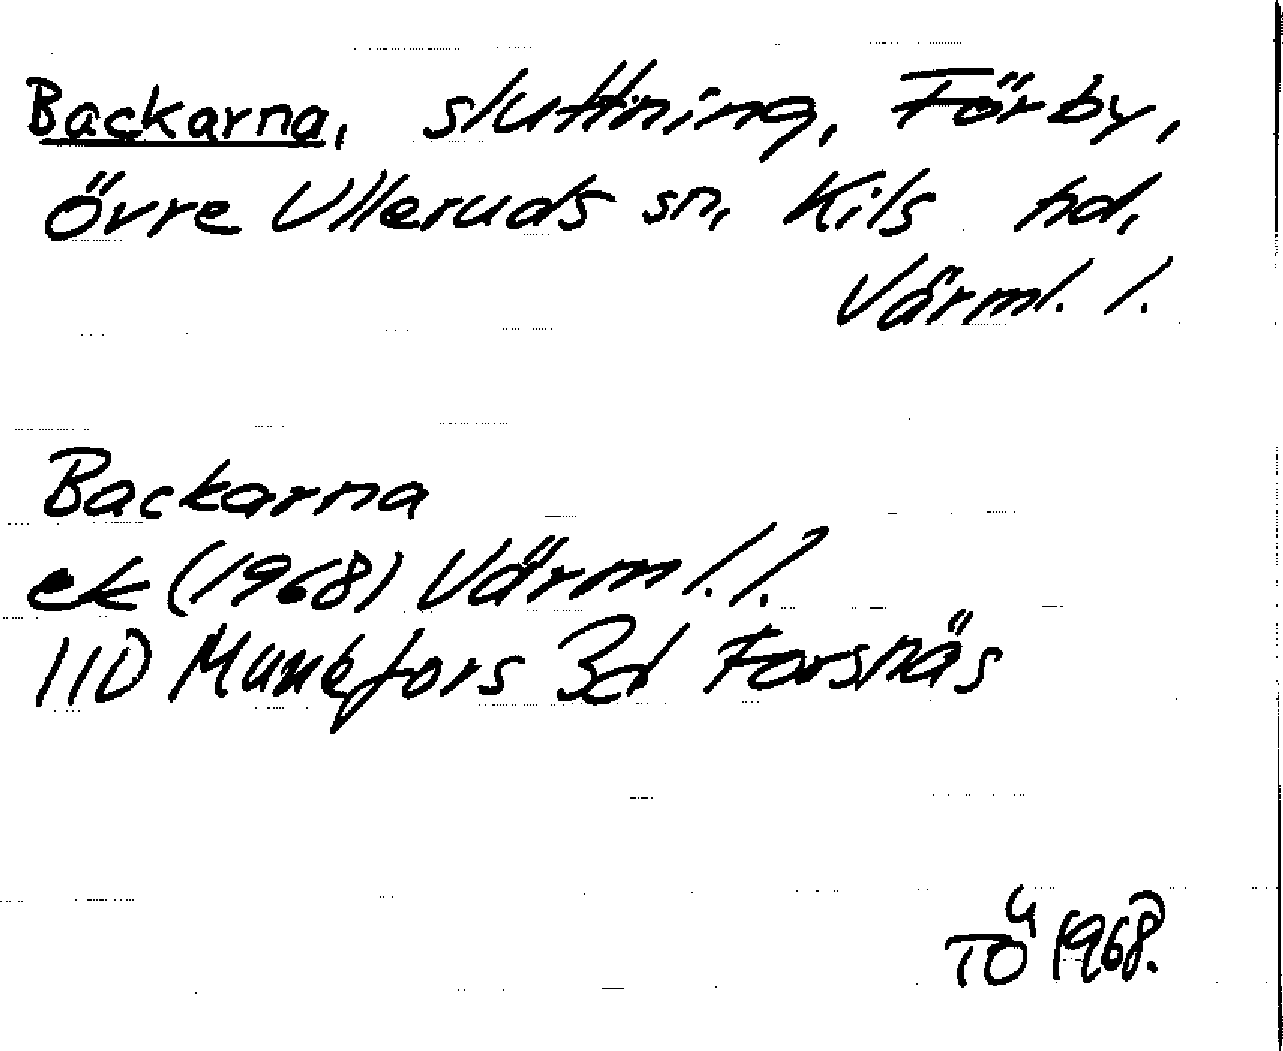 Backarna, sluttning, Förby,
Övre Ulleruds sn, Kils hd,
Värml. l.
Backarna
ek (1968) Värml. l.
11D Munkfors 3d Forsnäs
TÖ 1968.